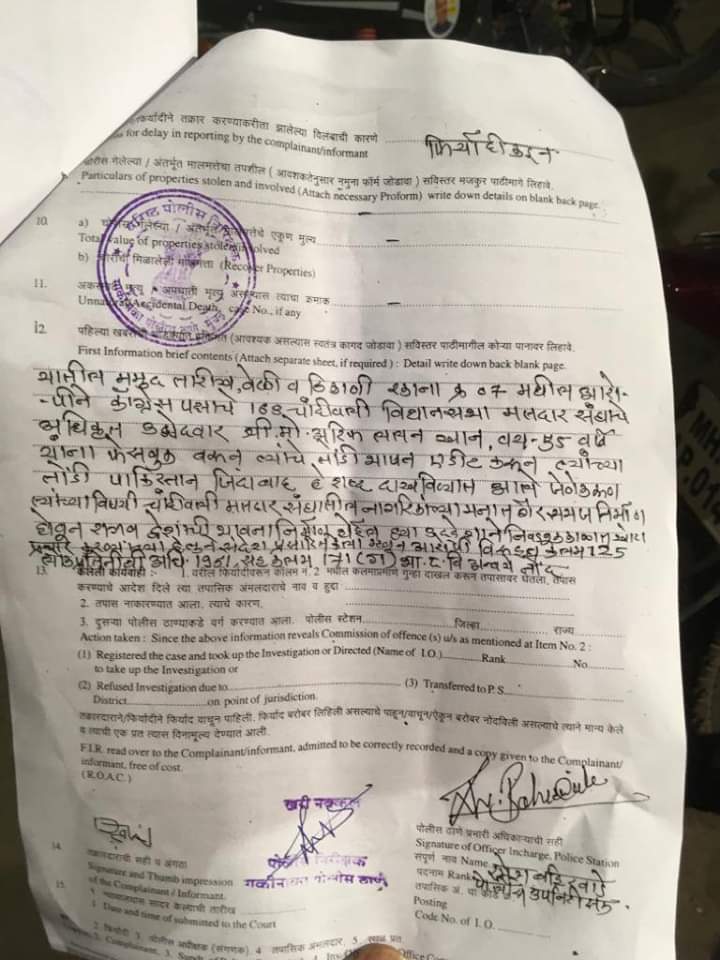 फिर्यादीने तक्रार करण्याकरीता झालेल्या विलंबाची कारणे
for delay in reporting by the complainant/informant
फिर्यादीकडून
गेलेल्या / अंतर्भूत मालमत्तेचा तपशील ( आवशकतेनुसार नमुना फॉर्म जोडावा ) सविस्तर मजकुर पाठीमागे लिहावे.
Particulars of properties stolen and involved (Attach necessary Proform) write down details on blank back page.
10. a) गेलेल्या / एकुण मुल्य –
Total value of properties stolen involved
b) चोरीची मिळालेली मालमत्ता (Recover Properties)
11. मृत्यू / अपघाती मृत्यू असल्यास त्याचा क्रमाक –
Unnatural/Accidental Death, case No., if any
12. पहिल्या (आवश्यक असल्यास स्वतंत्र कागद जोडावा ) सविस्तर पाठीमागील कोऱ्या पानावर लिहावे.
First Information brief contents (Attach separate sheet, if required ) : Detail write down back blank page.
यातील नमुद तारीख, वेळी व ठिकाणी रकाना क्र 07 मधील आरो-
पीने काँग्रेस पक्षाचे 168 चांदीवली विधानसभा मतदार संघाचे
अधिकृत उमेदवार श्री. मो. आरिफ ललन खान, वय-55 वर्षे
यांना फेसबुक वरून त्यांचे भाषण एडीट करून त्यांच्या
तोंडी पाकिस्तान जिंदाबाद हे शब्द दाखविण्यात आले जेणेकरून
त्यांच्याविषयी चांदिवली मतदार संघातील नागरिकांच्या मनात गैरसमज निर्माण
होवून शत्रुत्व द्वेशाची भावना निर्माण होईल ह्या उद्देशाने निवडणुक काळात खोटा
प्रचार करून तसा संदेश प्रसारित केला म्हणून आरोपी विरुद्ध कलम 125
लोकप्रतिनीधी अधि. 1951, सह कलम 171 (ग) भा. द. वि अन्वये नोंद
13. केलेली कार्यवाही :- 1. वरील फिर्यादीवरून कॉलम न. 2 मधील कलमाप्रमाणे गुन्हा दाखल करून तपासावर घेतला, तपास
करण्याचे आदेश दिले त्या तपासिक अंमलदाराचे नाव व हुद्दा :
2. तपास नाकारण्यात आला. त्याचे कारण.
3. दुसऱ्या पोलीस ठाण्याकडे वर्ग करण्यात आला. पोलीस स्टेशन जिल्हा राज्य
Action taken : Since the above information reveals Commission of offence (s) u/s as mentioned at Item No. 2 :
(1) Registered the case and took up the Investigation or Directed (Name of I.O.) Rank No
to take up the Investigation or
(2) Refused Investigation due to (3) Transferred to P. S.
District on point of jurisdiction.
तक्रारदाराने/फिर्यादीने फिर्याद वाचून पाहिली. फिर्याद बरोबर लिहिली असल्याचे पाहून/वाचून/ऐकून बरोबर नोंदविली असल्याचे त्याने मान्य केले
व त्याची एक प्रत त्यास विनामूल्य देण्यात आली.
F.I.R. read over to the Complainant/informant, admitted to be correctly recorded and a copy given to the Complainant/
informant, free of cost.
(R.O.A.C.)
खरी नक्कल
पोलीस निरीक्षक
साकीनाका पोलीस ठाणे
पोलीस ठाणे प्रभारी अधिकाऱ्याची सही
Signature of Officer Incharge, Police Station
संपूर्ण नाव Name
पदनाम Rank
तपासिक अं. चा कोड
पोलीस उपनिरीक्षक
Posting
Code No. of I. O.
14. तक्रारदाराची सही व अंगठा
Signature and Thumb impression
of the Complainant / Informant.
15. न्यायालयात सादर केल्याची तारीख
Date and time of submitted to the Court
2. फिर्यादी 3. पोलीस अधीक्षक (संगणक). 4. तपासिक अंमलदार, 5. स्थळ प्रत.
Complainant, 3.